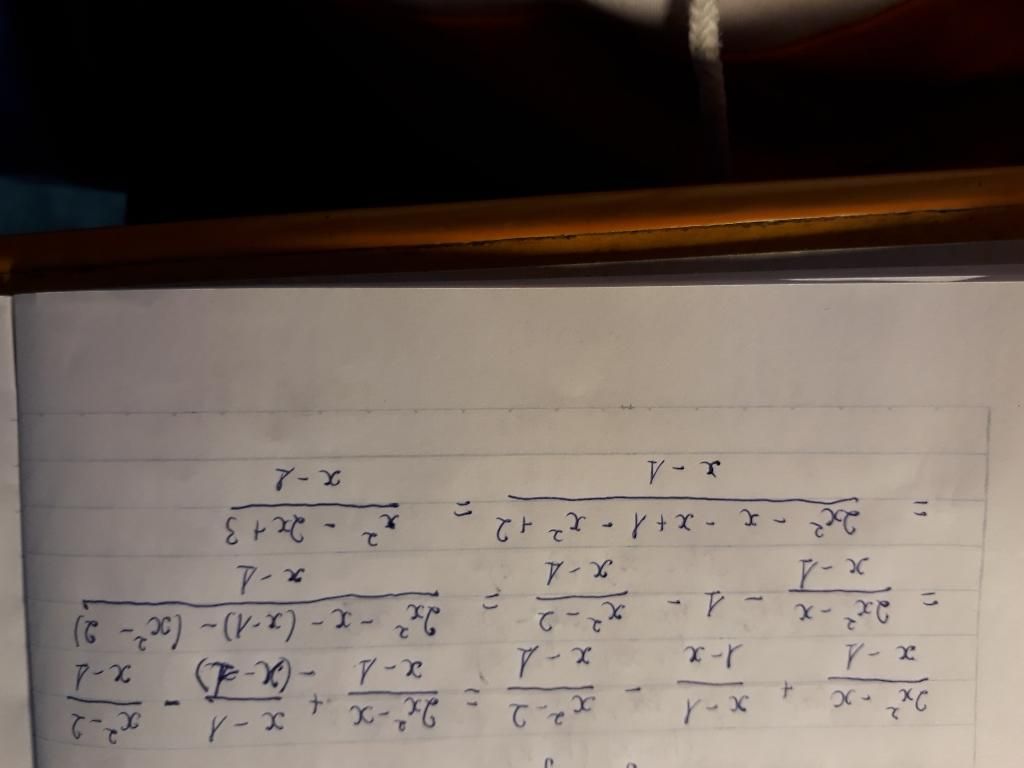 (2x² - x)/(x - 1) + (x - 1)/(1 - x) - (x² - 2)/(x - 1) = (2x² - x)/(x - 1) + (x - 1)/(-(x - 1)) - (x² - 2)/(x - 1)
= (2x² - x)/(x - 1) - 1 - (x² - 2)/(x - 1) = (2x² - x - (x - 1) - (x² - 2))/(x - 1)
= (2x² - x - x + 1 - x² + 2)/(x - 1) = (x² - 2x + 3)/(x - 1)